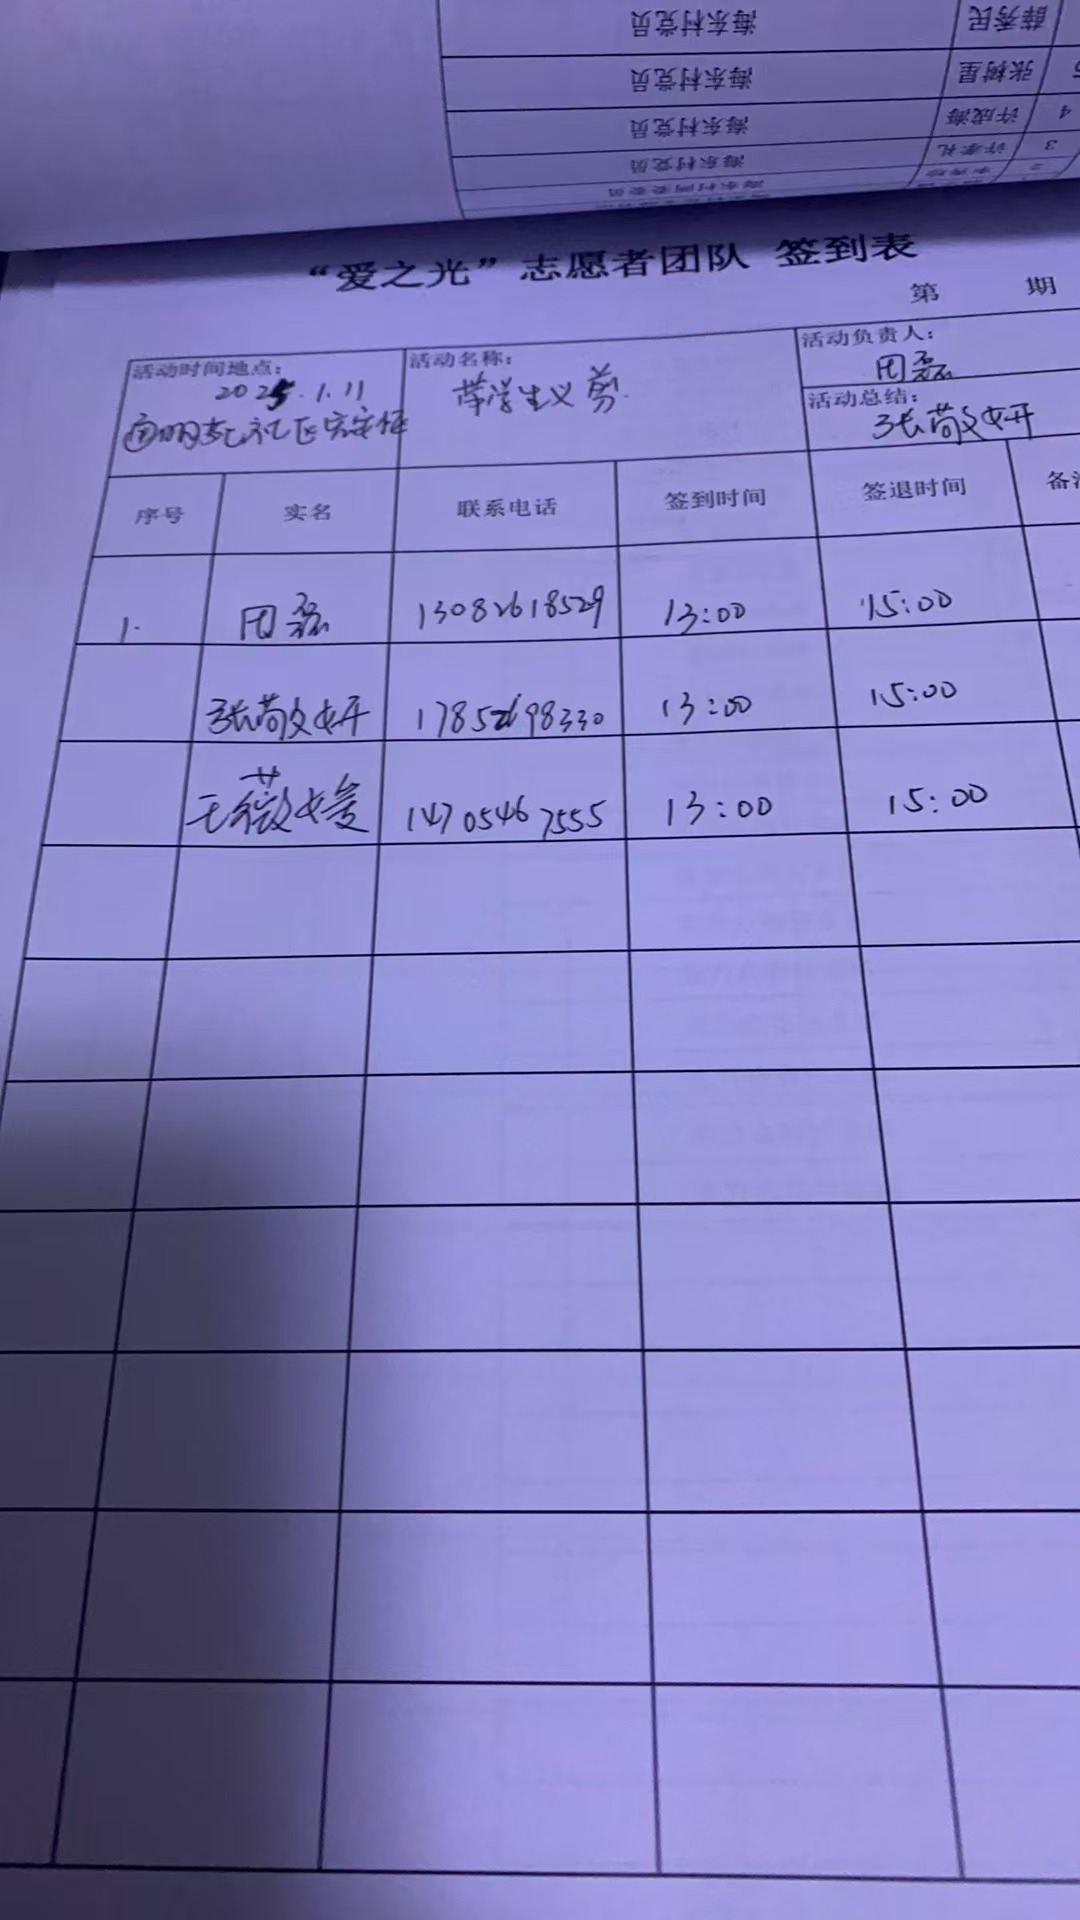 薛秀民 海东村党员
张树星 海东村党员
4 许成海 海东村党员
3 许孝礼 海东村党员
2 海东村两委委员
“爱之光”志愿者团队 签到表
第 期
活动时间地点: 活动名称: 活动负责人:
2025.1.11 带学生义剪 田磊
社区 活动总结:
张敬妍
序号 实名 联系电话 签到时间 签退时间 备注
1. 田磊 13082618529 13:00 15:00
张敬妍 17852698330 13:00 15:00
王薇媛 14705467555 13:00 15:00